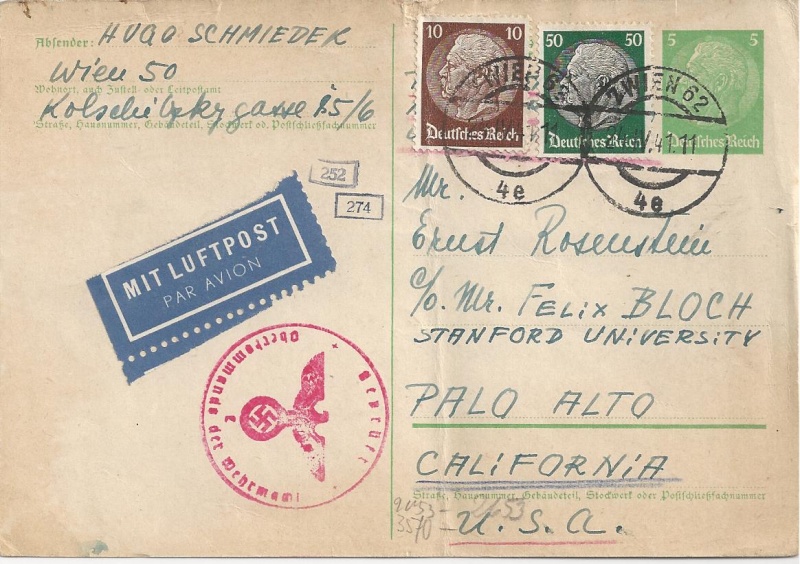 Absender: HUGO SCHMIEDEK
Wien 50
Wohnort, auch Zustell- oder Leitpostamt
Kolschitzkygasse 15/6
Straße, Hausnummer, Gebäudeteil, Stockwerk od. Postschließfachnummer
10 10
Deutsches Reich
50 50
Deutsches Reich
5 5
Deutsches Reich
WIEN 62
4e
WIEN 62
IV.41.11
4e
252
274
MIT LUFTPOST
PAR AVION
Geprüft
Oberkommando der Wehrmacht
Mr.
Ernst Rosenstein
c/o. Mr. FELIX BLOCH
STANFORD UNIVERSITY
PALO ALTO
CALIFORNIA
Straße, Hausnummer, Gebäudeteil, Stockwerk oder Postschließfachnummer
U.S.A.
3570